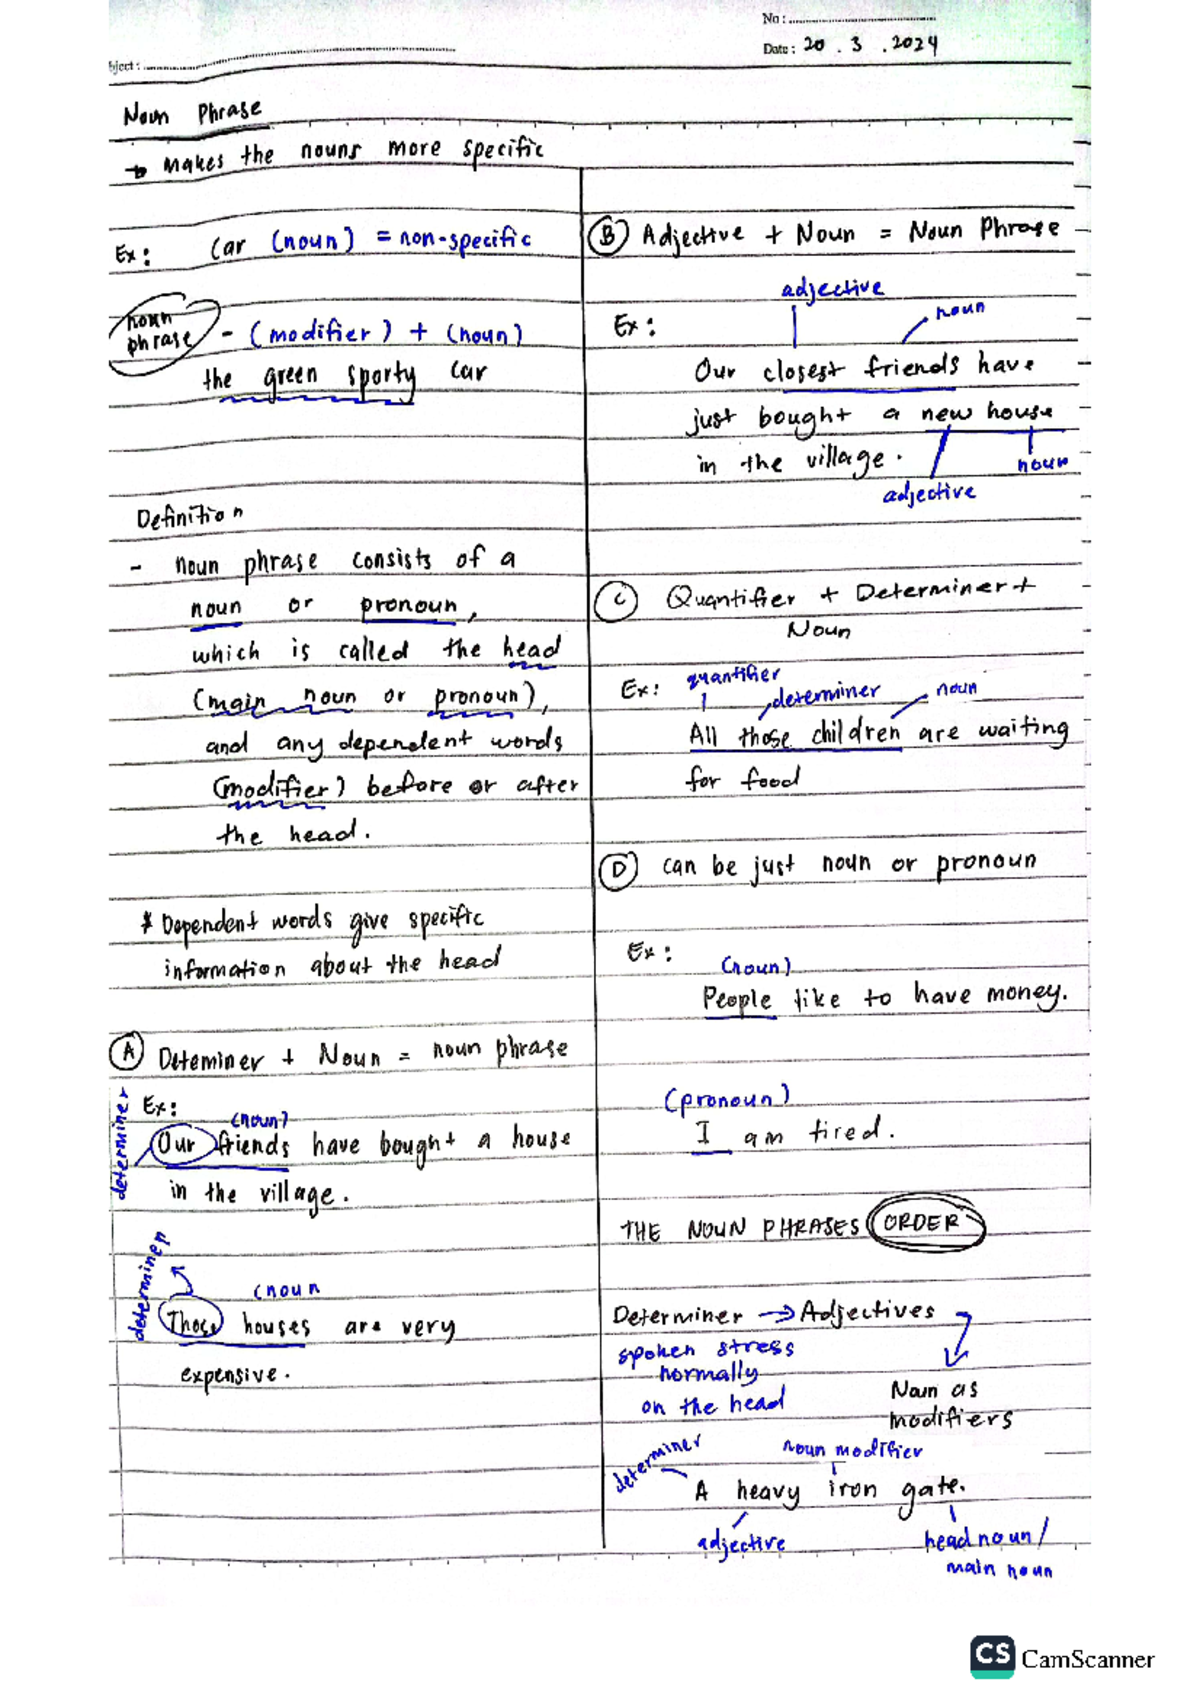 No :
Date : 20 . 3 . 2024
bject :
Noun Phrase
→ Makes the nouns more specific
Ex : Car (noun) = non-specific
noun
phrase - (modifier) + (noun)
the green sporty car
Definition
- noun phrase consists of a
noun or pronoun,
which is called the head
(main noun or pronoun),
and any dependent words
(modifier) before or after
the head.
* Dependent words give specific
information about the head
(A) Deteminer + Noun = noun phrase
Ex :
(noun)
determiner
Our friends have bought a house
in the village.
determiner
(noun
Those houses are very
expensive.
(B) Adjective + Noun = Noun Phrase
adjective
noun
Ex :
Our closest friends have
just bought a new house
in the village.
noun
adjective
(C) Quantifier + Determiner +
Noun
Ex: quantifier
determiner
noun
All those children are waiting
for food
(D) can be just noun or pronoun
Ex :
(noun)
People like to have money.
(pronoun)
I am tired.
THE NOUN PHRASES ORDER
Determiner → Adjectives
spoken stress
normally
on the head
Noun as
modifiers
determiner
noun modifier
A heavy iron gate.
adjective
head noun /
main noun
CS CamScanner